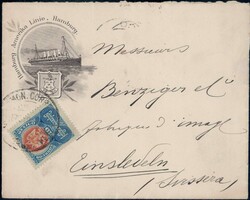 Hamburg Amerika Linie, Hamburg
Messieurs
Benziger et Cie
fabrique d'imag
Einsiedeln
(Svizzera)